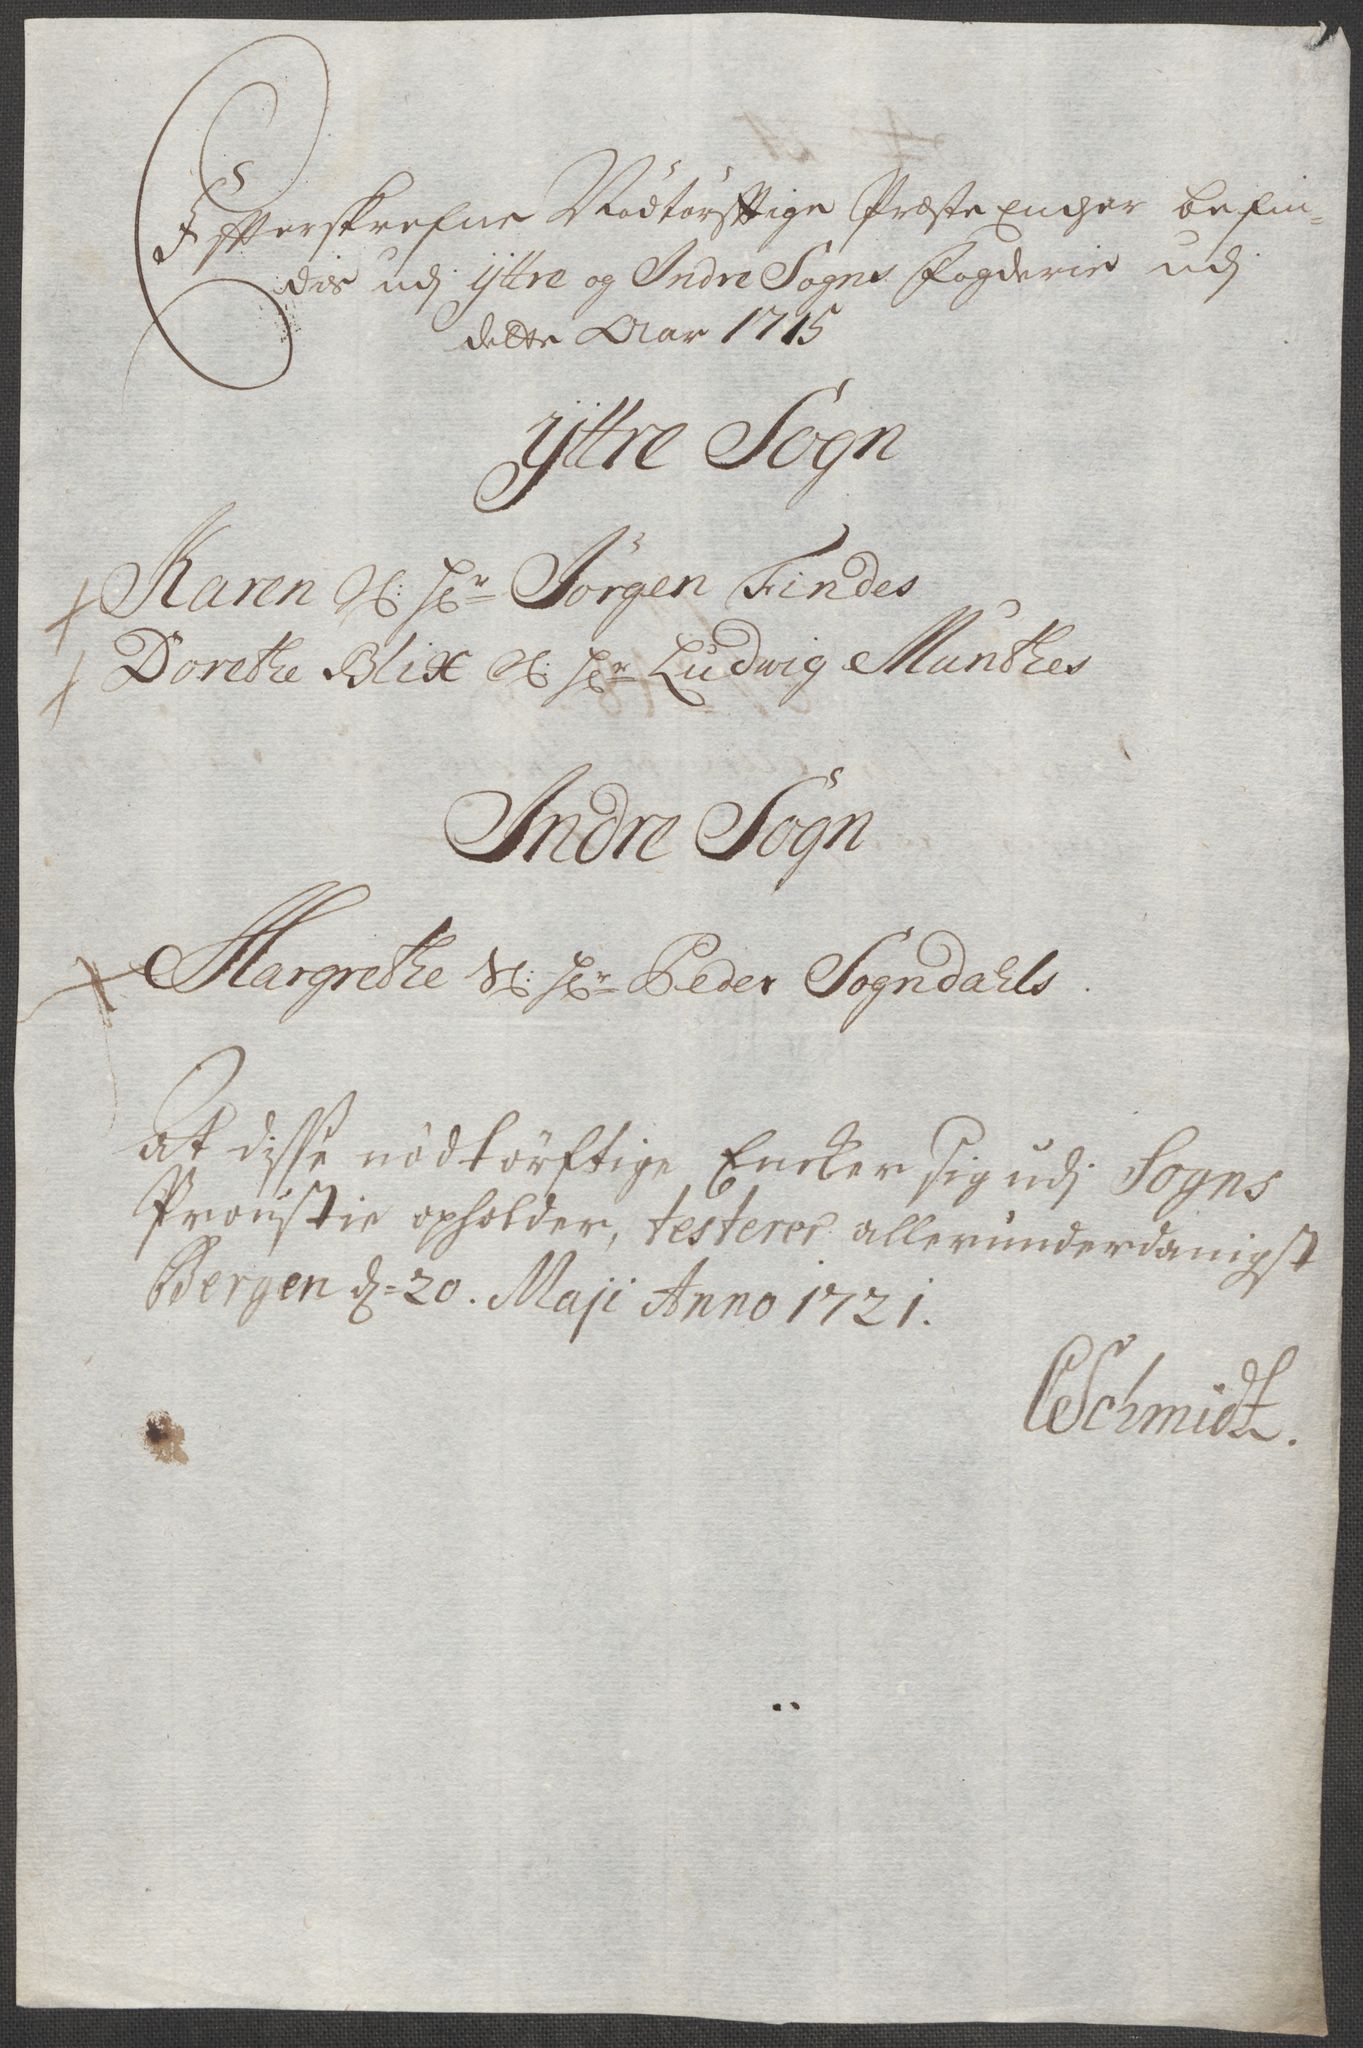 Efterskrefne Nödtörfftige Præste Encher befin-
des udj ijttre og Indre Sogns Fogderie udj
dette Aar 1715
ijttre Sogn
Karen Sl: Hr Jörgen Findes
Dorethe Blix Sl: Hr Ludwig Munthes
Indre Sogn
Margrethe Sl: Hr Peder Sogndahls.
At disse nödtörftige Encker sig udj Sogns
Proustie opholder, testerer allerunderdanigst
Bergen d: 20. Maji Anno 1721.
CSchmidt.